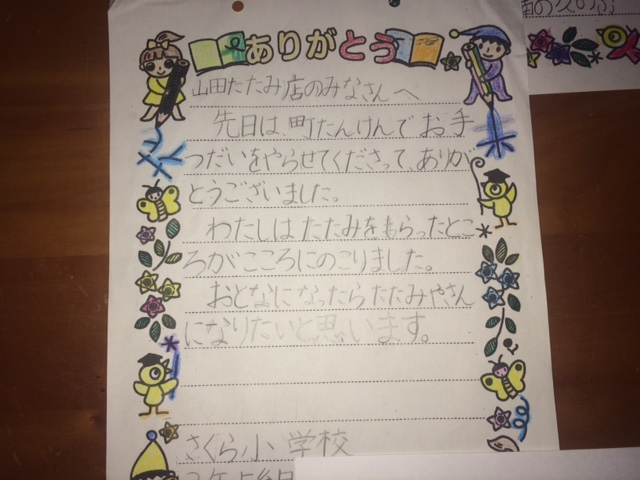 ありがとう
山田たたみ店のみなさんへ
先日は、町たんけんでお手
つだいをやらせてくださって、ありが
とうございました。
わたしはたたみをもらったとこ
ろがこころにのこりました。
おとなになったらたたみやさん
になりたいと思います。
さくら小学校